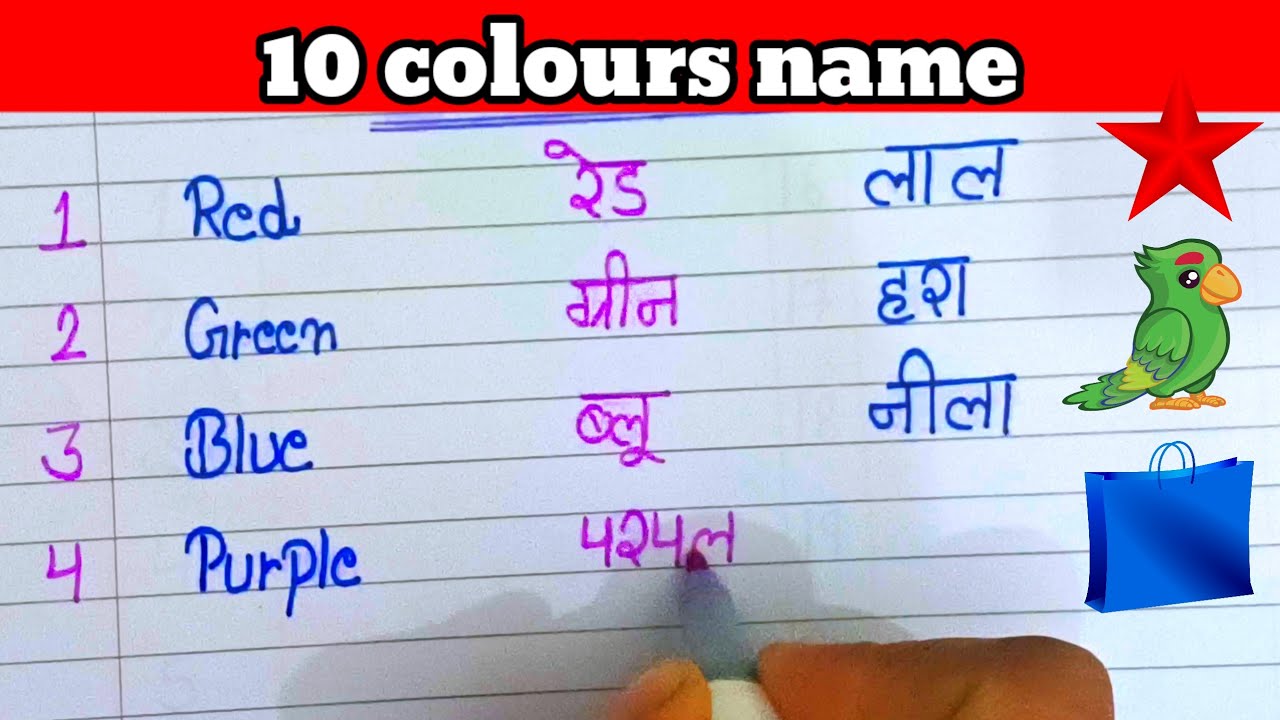 10 colours name
1 Red रेड लाल
2 Green ग्रीन हरा
3 Blue ब्लू नीला
4 Purple परपल